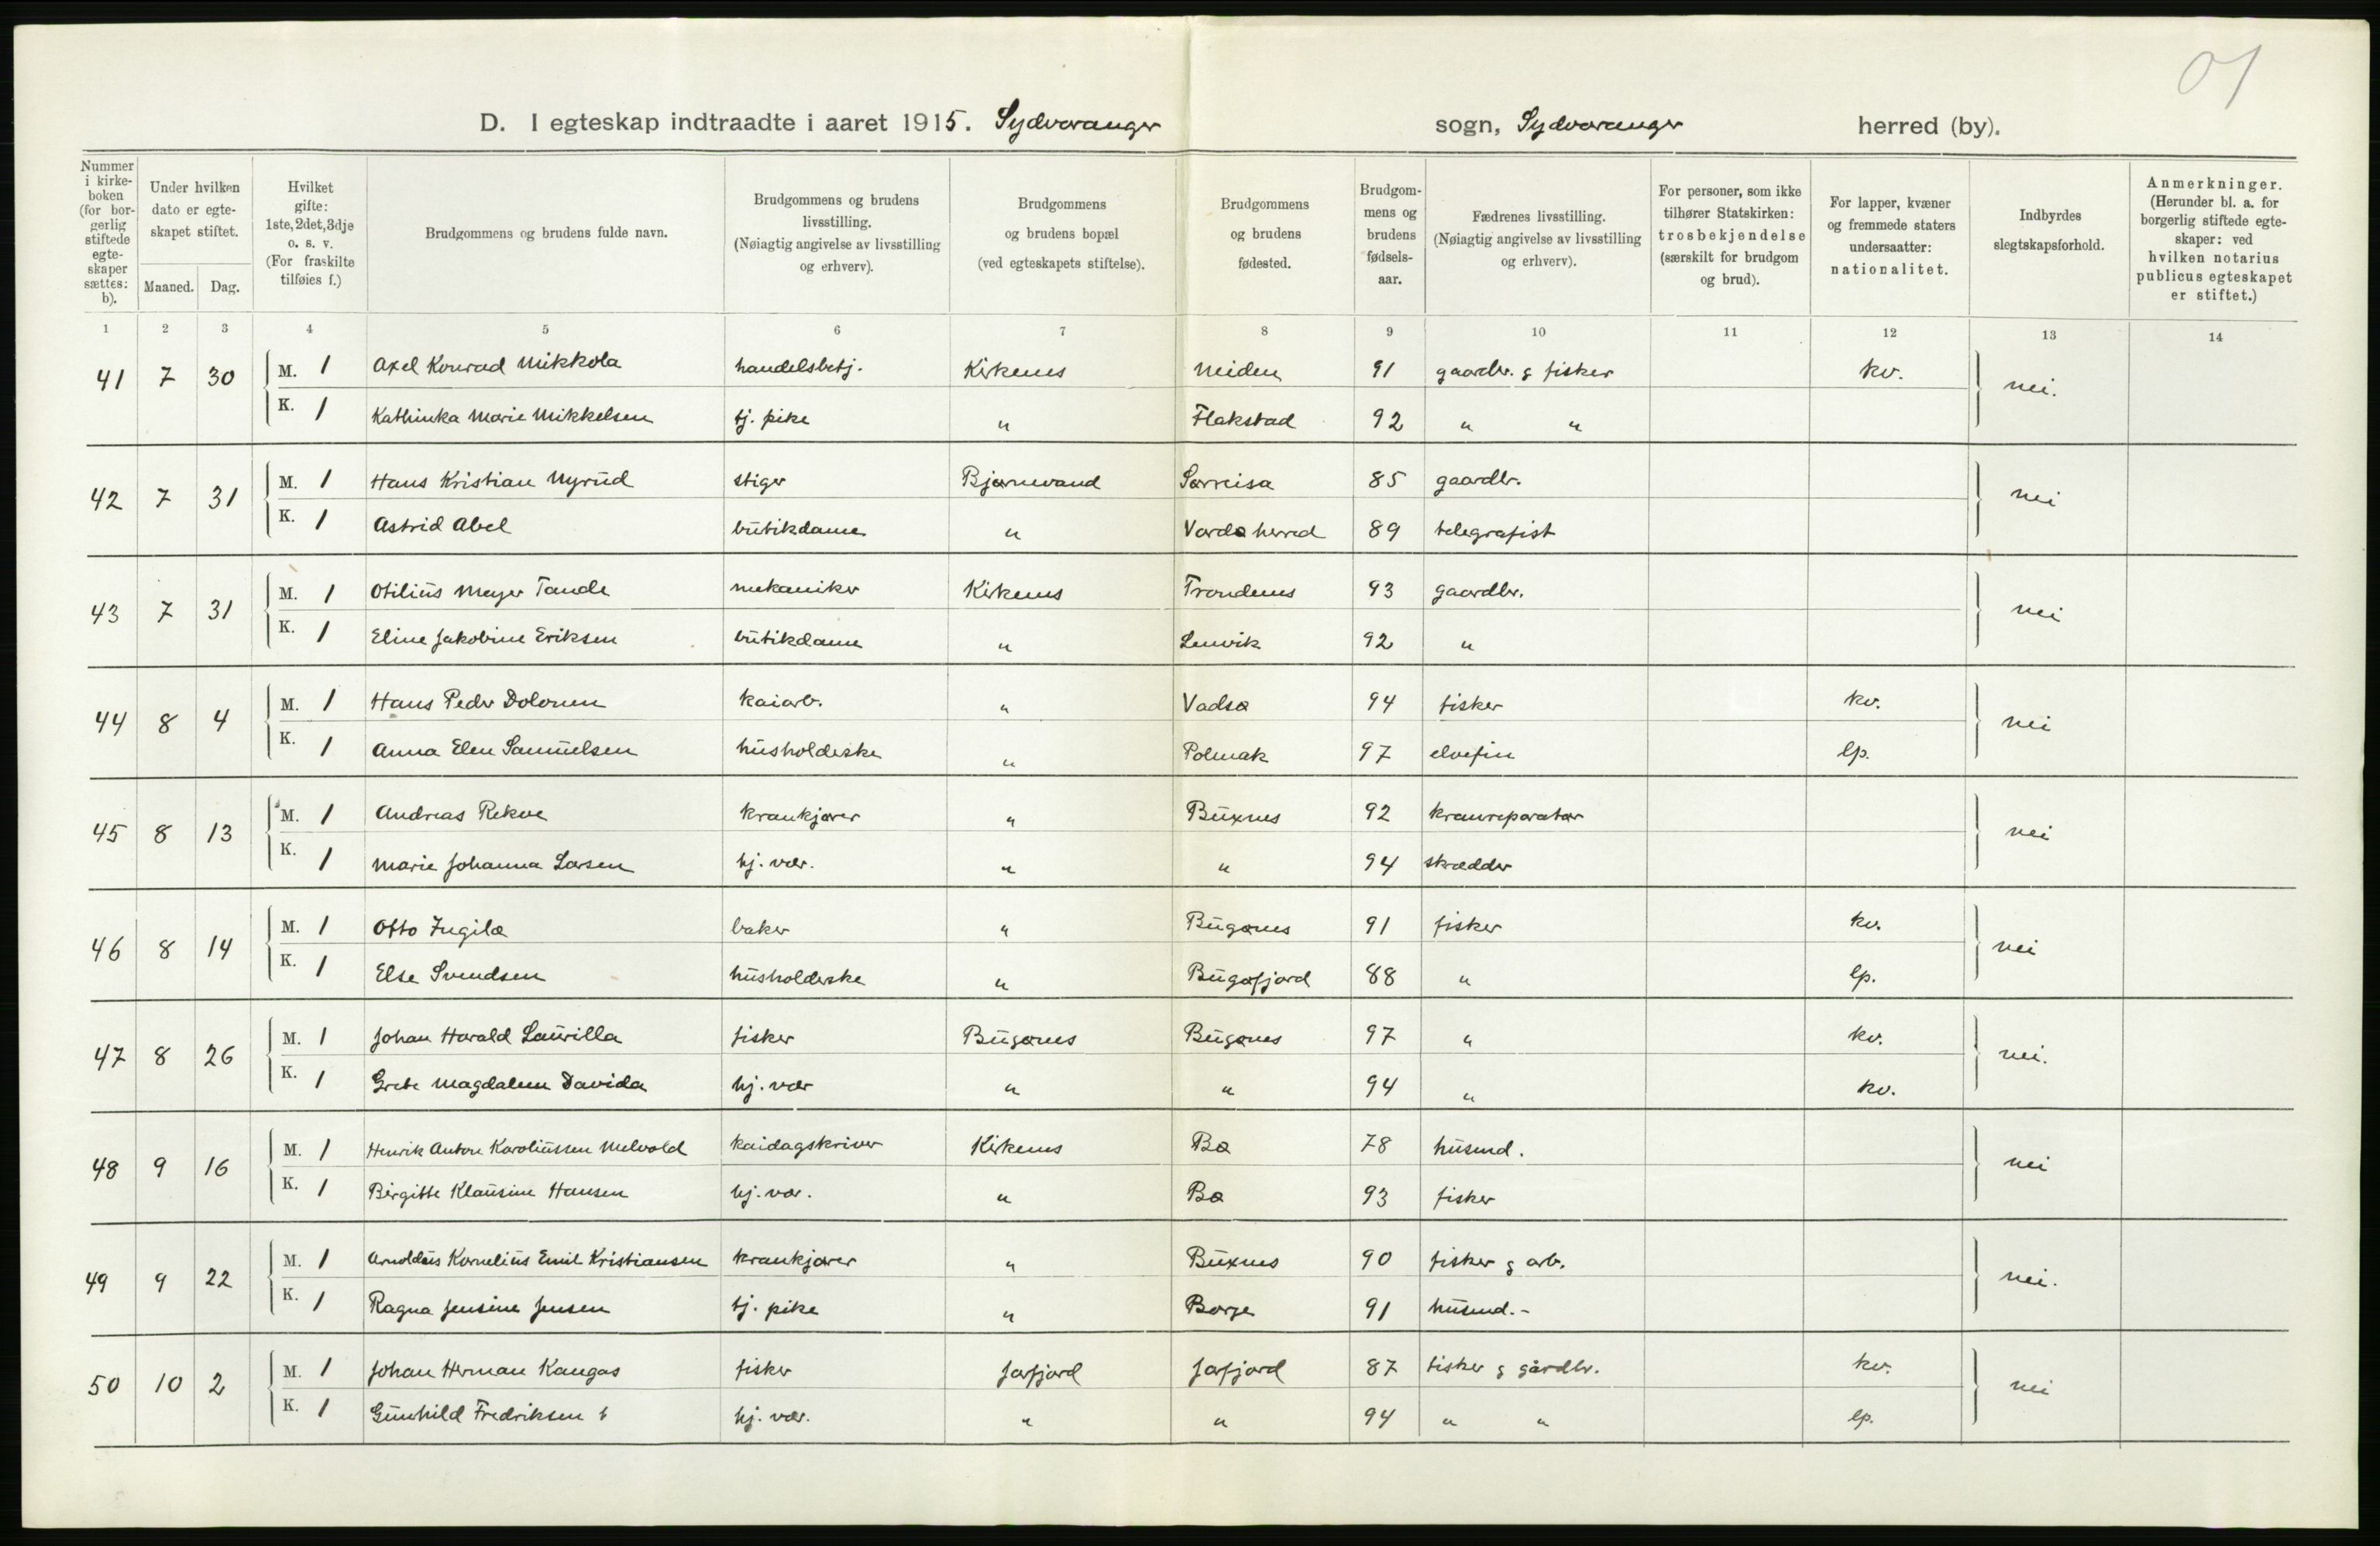 01
D. I egteskap indtraadte i aaret 1915. Sydvaranger sogn, Sydvaranger herred (by).
Nummer i kirke- boken (for bor- gerlig stiftede egte- skaper sættes: b).
Under hvilken dato er egte- skapet stiftet.
Maaned. Dag.
Hvilket gifte: 1ste, 2det, 3dje o. s. v. (For fraskilte tilføies f.)
Brudgommens og brudens fulde navn.
Brudgommens og brudens livsstilling. (Nøiagtig angivelse av livsstilling og erhverv).
Brudgommens og brudens bopæl (ved egteskapets stiftelse).
Brudgommens og brudens fødested.
Brudgom- mens og brudens fødsels- aar.
Fædrenes livsstilling. (Nøiagtig angivelse av livsstilling og erhverv).
For personer, som ikke tilhører Statskirken: trosbekjendelse (særskilt for brudgom og brud).
For lapper, kvæner og fremmede staters undersaatter: nationalitet.
Indbyrdes slegtskapsforhold.
Anmerkninger. (Herunder bl. a. for borgerlig stiftede egte- skaper: ved hvilken notarius publicus egteskapet er stiftet.)
1 2 3 4 5 6 7 8 9 10 11 12 13 14
41 7 30 M. 1 Axel Konrad Mikkola handelsbetj. Kirkenes Neiden 91 gaardbr. & fisker kv. nei.
K. 1 Kathinka Marie Mikkelsen tj. pike " Flakstad 92 " "
42 7 31 M. 1 Hans Kristian Nyrud stiger Bjørnevand Sørreisa 85 gaardbr. nei
K. 1 Astrid Abel butikdame " Vardø herred 89 telegrafist
43 7 31 M. 1 Otilius Meyer Tande mekaniker Kirkenes Trondenes 93 gaardbr. nei
K. 1 Eline Jakobine Eriksen butikdame " Lenvik 92 "
44 8 4 M. 1 Hans Peder Dolonen kaiarb. " Vadsø 94 fisker kv. nei
K. 1 Anna Elen Samuelsen husholderske " Polmak 97 elvefin lp.
45 8 13 M. 1 Andreas Rekve krankjører " Buxnes 92 kranreparatør nei
K. 1 Marie Johanna Larsen hj. vær. " " 94 skrædder
46 8 14 M. 1 Otto Ingilæ baker " Bugønes 91 fisker kv. nei
K. 1 Else Svendsen husholderske " Bugøfjord 88 " lp.
47 8 26 M. 1 Johan Harald Laurilla fisker Bugønes Bugønes 97 " kv. nei.
K. 1 Grete Magdalene Davida hj. vær " " 94 " kv.
48 9 16 M. 1 Henrik Anton Karoliussen Melvold kaidagskriver Kirkenes Bø 78 husmd. nei
K. 1 Birgitte Klausine Hansen hj. vær. " Bø 93 fisker
49 9 22 M. 1 Arnoldus Kornelius Emil Kristiansen krankjører " Buxnes 90 fisker & arb. nei.
K. 1 Ragna Jensine Jensen tj. pike " Borge 91 husmd. -
50 10 2 M. 1 Johan Herman Kangas fisker Jarfjord Jarfjord 87 fisker & gårdbr. kv. nei
K. 1 Gunhild Fredriksen hj. vær. " " 94 " " lp.